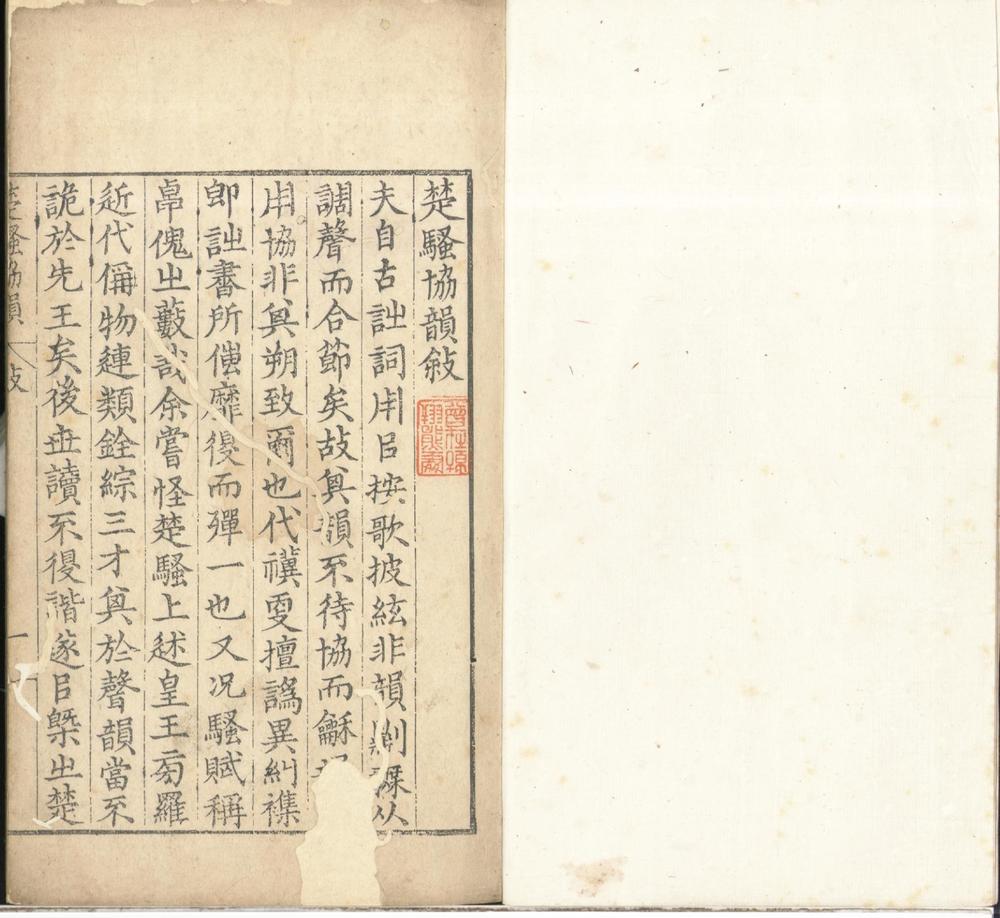 楚騷協韻敘
夫自古詩詞用㠯按歌披絃非韻則繇从
調聲而合節矣故其韻不待協而龢
用協非其朔致爾也代禩更擅譌異糾襍
即詩書所靡復而殫一也又况騷賦稱
傀㞢藪哉余嘗怪楚騷上述皇王㫄羅
近代偁物連類銓綜三才其於聲韻當不
詭於先王矣後世讀不復諧遂㠯槩㞢楚
楚騷協韻 敘 一